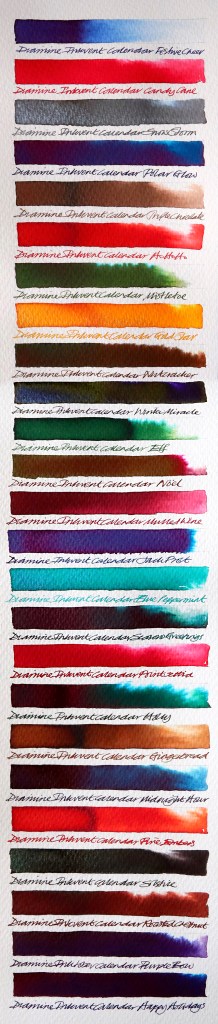 Diamine Inkvent Calendar Festive Cheer
Diamine Inkvent Calendar Candy Cane
Diamine Inkvent Calendar Snow Storm
Diamine Inkvent Calendar Polar Glow
Diamine Inkvent Calendar Triple Chocolate
Diamine Inkvent Calendar Ho Ho Ho
Diamine Inkvent Calendar Mistletoe
Diamine Inkvent Calendar Gold Star
Diamine Inkvent Calendar Nutcracker
Diamine Inkvent Calendar Winter Miracle
Diamine Inkvent Calendar Elf
Diamine Inkvent Calendar Noel
Diamine Inkvent Calendar Mulled Wine
Diamine Inkvent Calendar Jack Frost
Diamine Inkvent Calendar Blue Peppermint
Diamine Inkvent Calendar Seasons Greetings
Diamine Inkvent Calendar Poinsettia
Diamine Inkvent Calendar Holly
Diamine Inkvent Calendar Gingerbread
Diamine Inkvent Calendar Midnight Hour
Diamine Inkvent Calendar Fire Embers
Diamine Inkvent Calendar
Diamine Inkvent Calendar Roasted Chestnut
Diamine Inkvent Calendar Purple Bow
Diamine Inkvent Calendar Happy Holidays